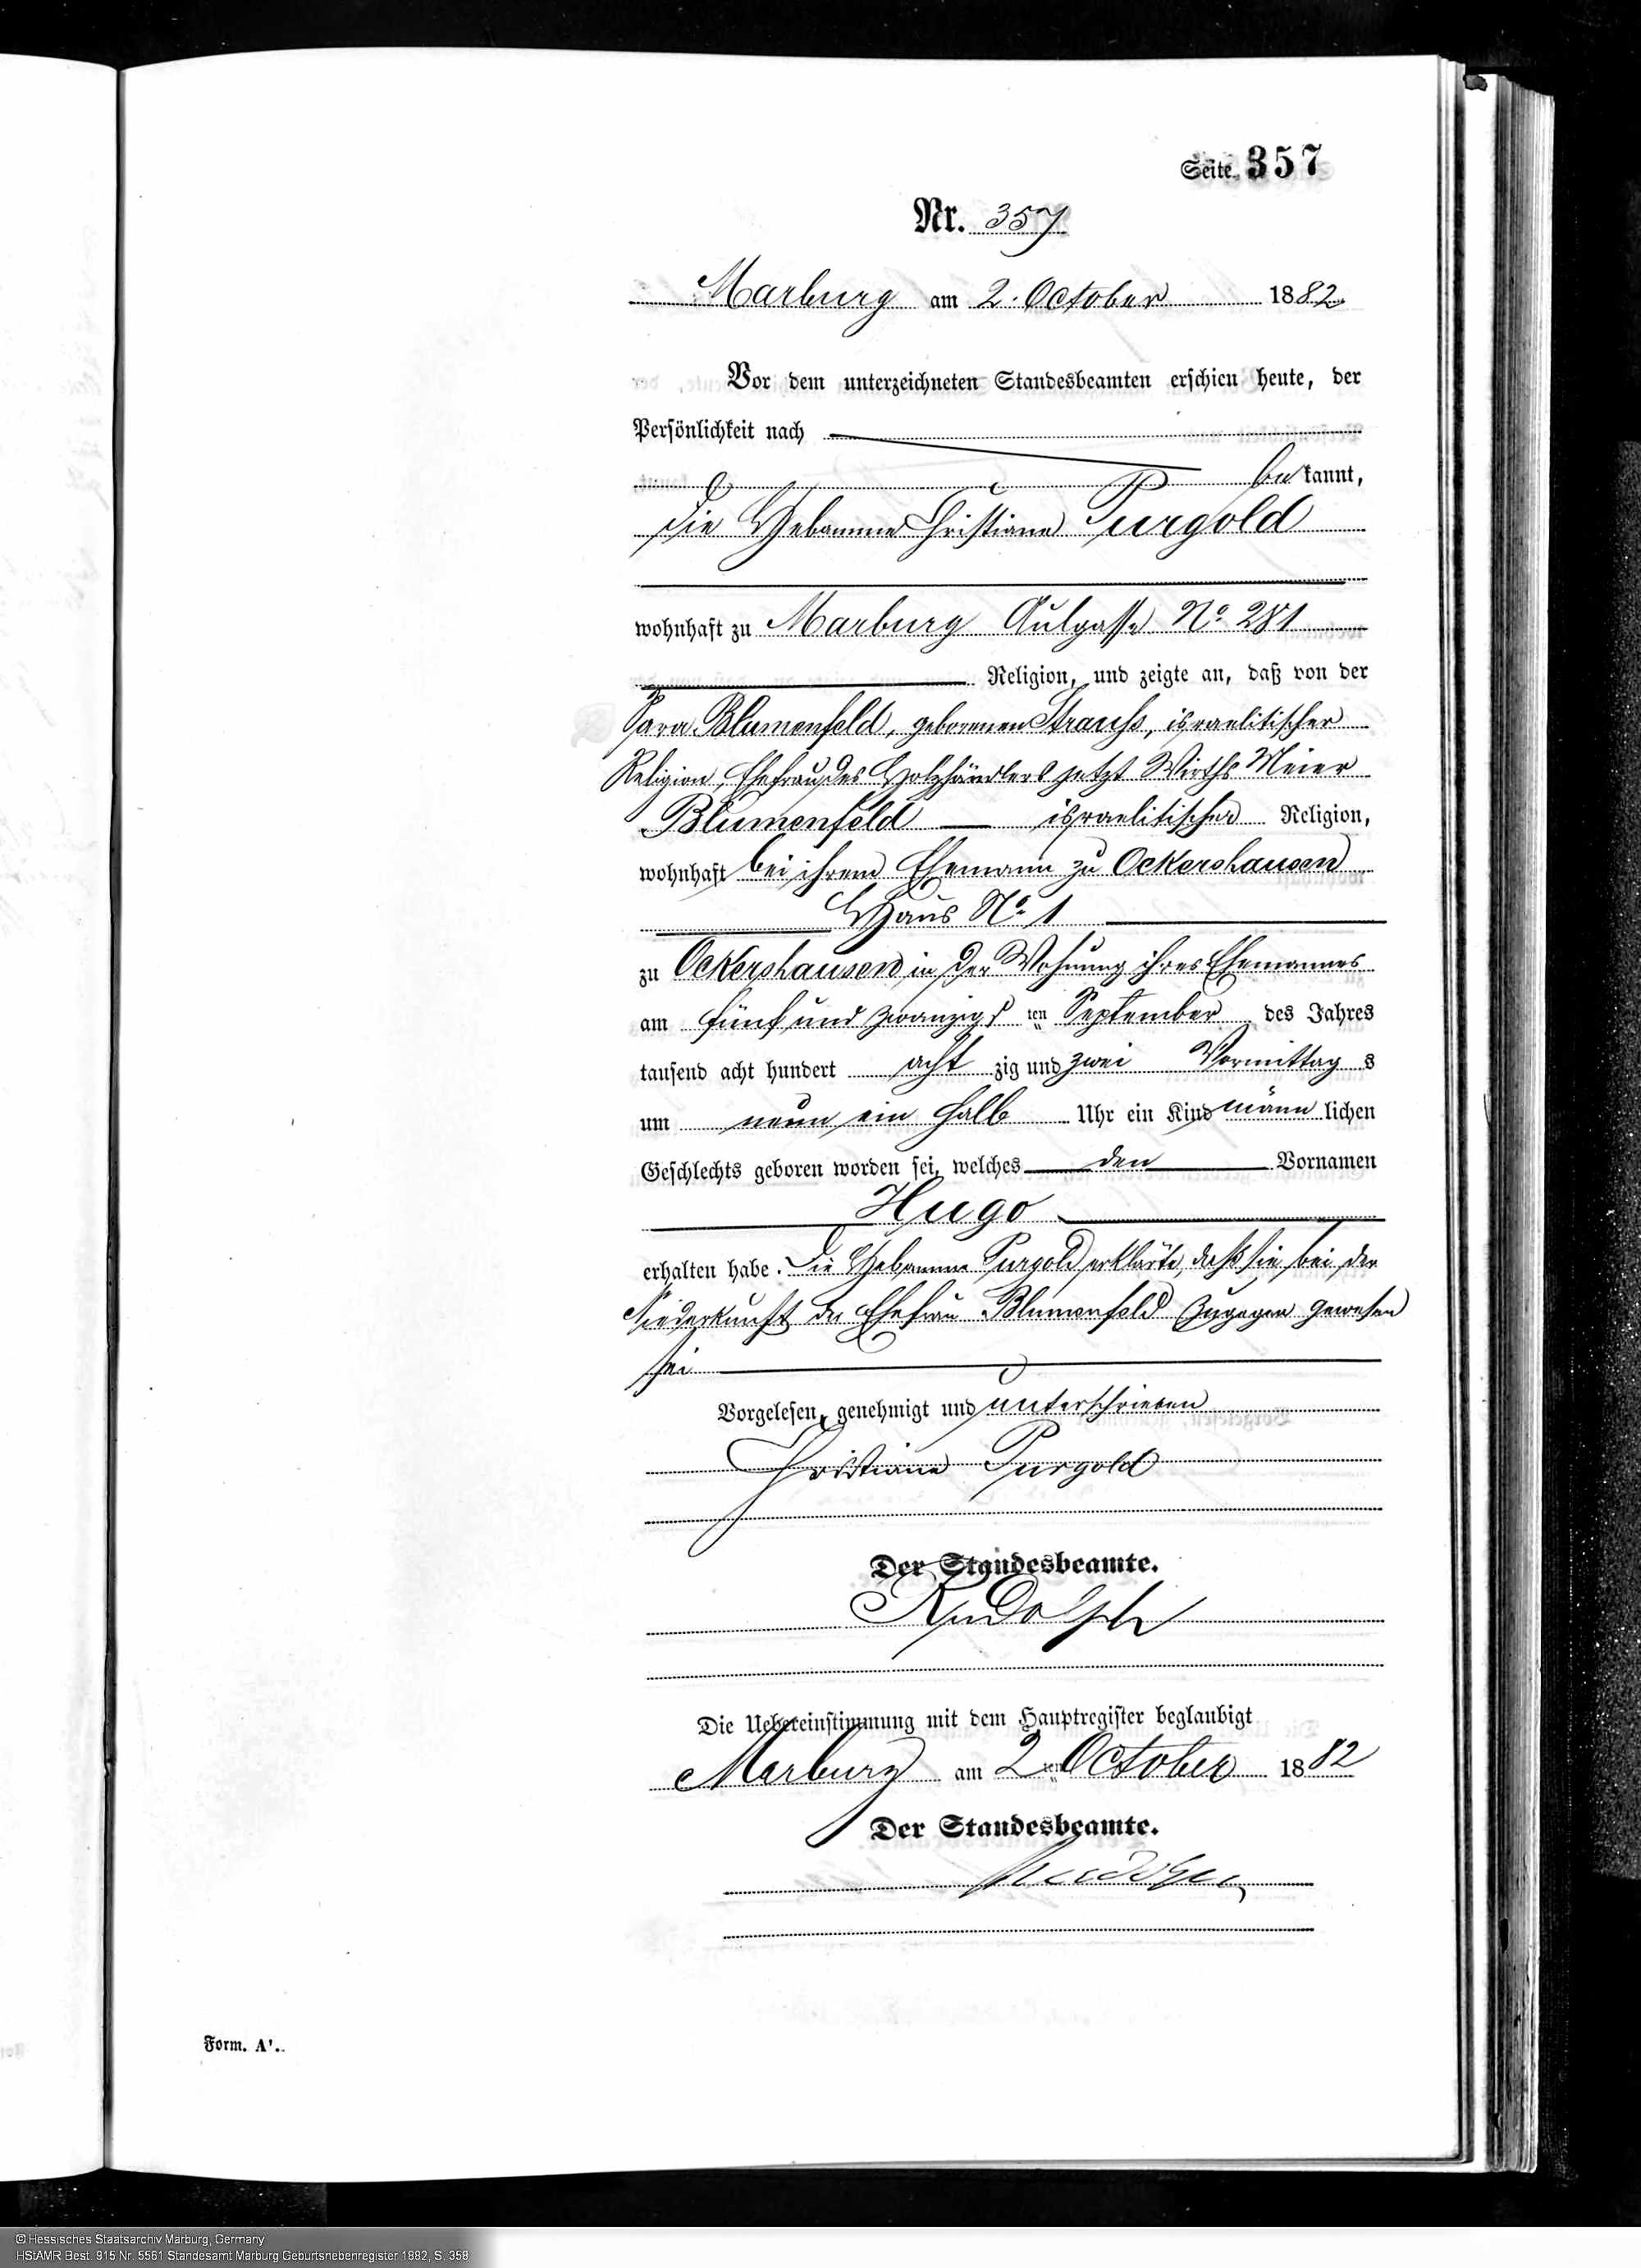 Seite 357
Nr. 357
Marburg am 2. October 1882
Vor dem unterzeichneten Standesbeamten erschien heute, der
Persönlichkeit nach
bekannt,
die Hebamme Christiane Purgold
wohnhaft zu Marburg Aulgasse No 281
Religion, und zeigte an, daß von der
Sara Blumenfeld, geborenen Strauß, israelitischer
Religion, Ehefrau des Holzhändlers jetzt Wirths Meier
Blumenfeld israelitischer Religion,
wohnhaft bei ihrem Ehemann zu Ockershausen
Haus No 1
zu Ockershausen in der Wohnung ihres Ehemannes
am fünf und zwanzigsten September des Jahres
tausend acht hundert acht zig und zwei Vormittags
um neun ein halb Uhr ein Kind männlichen
Geschlechts geboren worden sei, welches den Vornamen
Hugo
erhalten habe. Die Hebamme Purgold erklärte, daß sie bei der
Niederkunft der Ehefrau Blumenfeld zugegen gewesen
sei
Vorgelesen, genehmigt und unterschrieben
Christiane Purgold
Der Standesbeamte.
Rudolph
Die Uebereinstimmung mit dem Hauptregister beglaubigt
Marburg am 2ten October 1882
Der Standesbeamte.
Rudolph
Form. A¹.
© Hessisches Staatsarchiv Marburg, Germany
HStAMR Best. 915 Nr. 5561 Standesamt Marburg Geburtsnebenregister 1882, S. 358